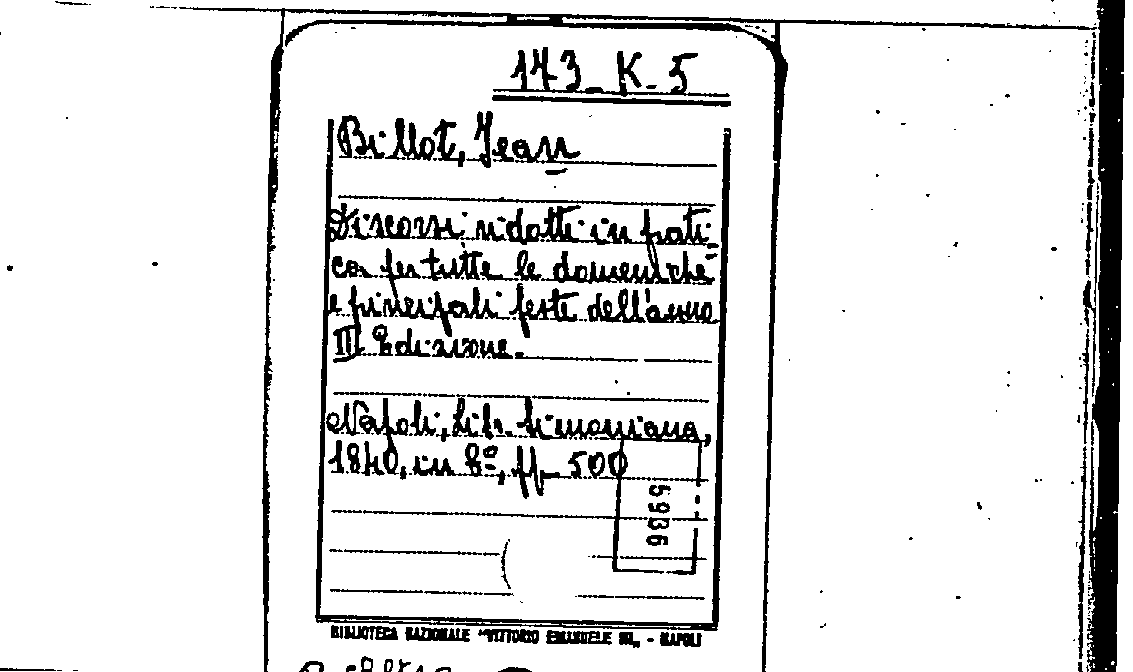 143-K-5
Billot, Jean
Discorsi ridotti in prati-
ca per tutte le domeniche
e principali feste dell'anno
III Edizione.
Napoli, Lib. Simoniana,
1840, in 8º, pp. 500
5936
BIBLIOTECA NAZIONALE "VITTORIO EMANUELE III" - NAPOLI